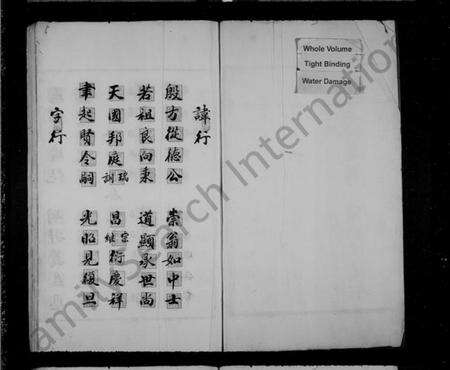 諱行
殷方從德公 崇翁如中士
若祖良向秉 道顯承世尚
天國邦庭訓瑞 昌繼宗衍慶祥
聿起賢令嗣 光昭見復旦
字行
Whole Volume
Tight Binding
Water Damage